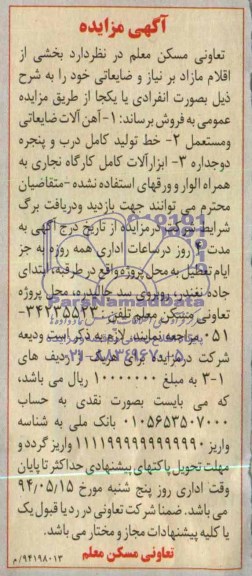 آگهی مزایده
تعاونی مسکن معلم در نظردارد بخشی از
اقلام مازاد بر نیاز و ضایعاتی خود را به شرح
ذیل بصورت انفرادی یا یکجا از طریق مزایده
عمومی به فروش برساند: ۱- آهن آلات ضایعاتی
ومستعمل ۲- خط تولید کامل درب و پنجره
دوجداره ۳- ابزارآلات کامل کارگاه نجاری به
همراه الوار و ورقهای استفاده نشده -متقاضیان
محترم می توانند جهت بازدید ودریافت برگ
شرایط شرکت درمزایده از تاریخ درج آگهی به
مدت ۴ روز درساعات اداری همه روزه به جز
ایام تعطیل به محل پروژه واقع در طرقبه، ابتدای
جاده نغندر، روبروی سد محل پروژه
تعاونی مسکن معلم تلفن:
۰۵۱ مراجعه نمایند. لازم به ذکر است ودیعه
شرکت درمزایده برای هریک از ردیف های
۱-۳ به مبلغ ۱۰۰۰۰۰۰۰ ریال می باشد،
که می بایست بصورت نقدی به حساب
۰۱۰۵۶۵۳۵۰۷۰۰۰ بانک ملی به شناسه
واریز ۱۱۱۱۹۹۹۹۹۹۹۹۹۹ واریز گردد و
مهلت تحویل پاکتهای پیشنهادی حداکثر تا پایان
وقت اداری روز پنج شنبه مورخ ۹۴/۰۵/۱۵
می باشد. ضمنا شرکت تعاونی در رد یا قبول یک
یا کلیه پیشنهادات مجاز و مختار می باشد.
تعاونی مسکن معلم
۹۴۱۹۸۰۱۳/م
ParsNamadData